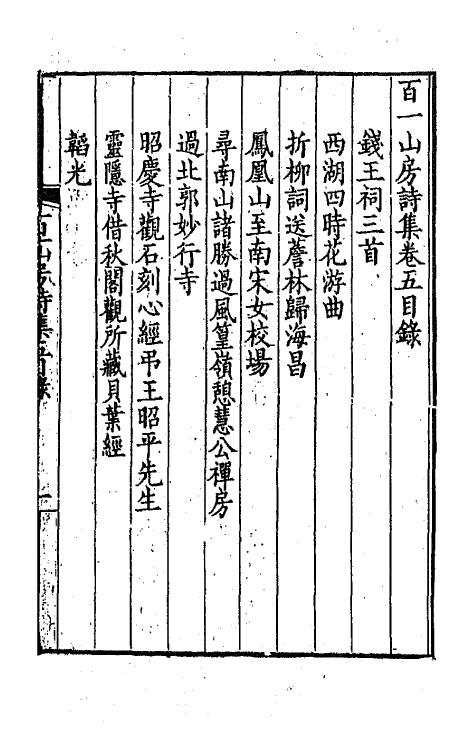 百一山房詩集卷五目錄
錢王祠三首
西湖四時花游曲
折柳詞送薝林歸海昌
鳳凰山至南宋女校場
尋南山諸勝過風篁嶺憩慧公禪房
過北郭妙行寺
昭慶寺觀石刻心經弔王昭平先生
靈隱寺借秋閣觀所藏貝葉經
韜光
百一山房詩集五目錄
一